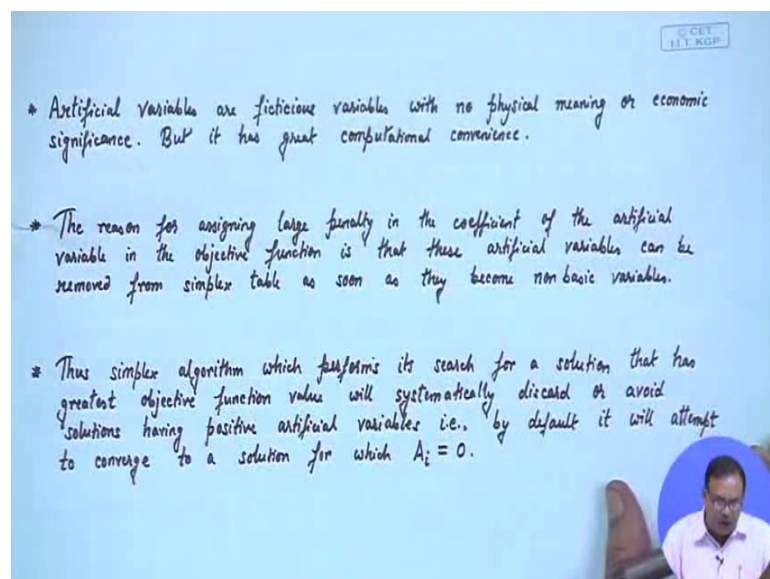 © CET
I.I.T. KGP
* Artificial variables are ficticious variables with no physical meaning or economic
significance. But it has great computational convenience.
* The reason for assigning large penalty in the coefficient of the artificial
variable in the objective function is that these artificial variables can be
removed from simplex table as soon as they become non basic variables.
* Thus simplex algorithm which performs its search for a solution that has
greatest objective function value will systematically discard or avoid
solutions having positive artificial variables i.e., by default it will attempt
to converge to a solution for which Ai = 0.